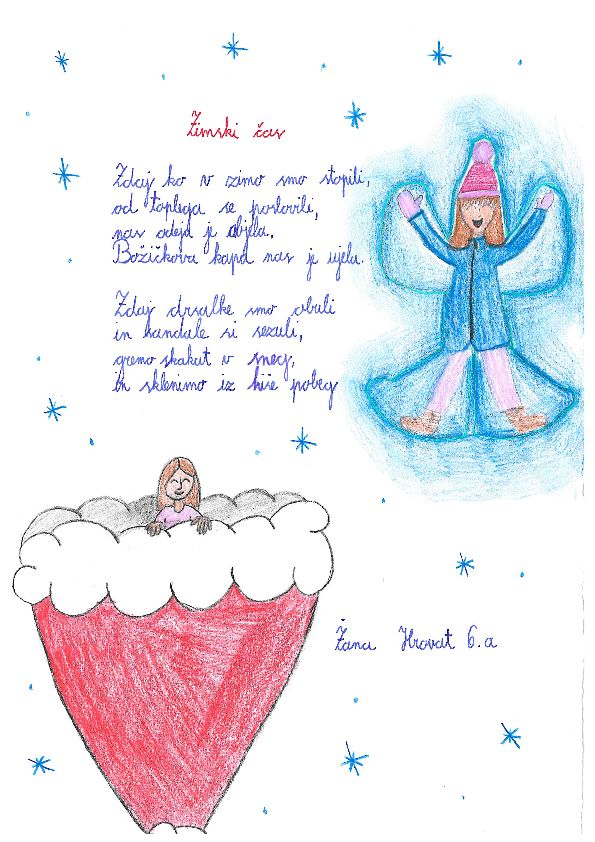 Zimski čas
Zdaj ko v zimo smo stopili,
od toplega se poslovili,
nas odeja je objela,
Božičkova kapa nas je ujela.
Zdaj drsalke smo obuli
in sandale si sezuli,
gremo skakat v sneg,
in sklenimo iz hiše pobeg
Žana Hrovat 6.a